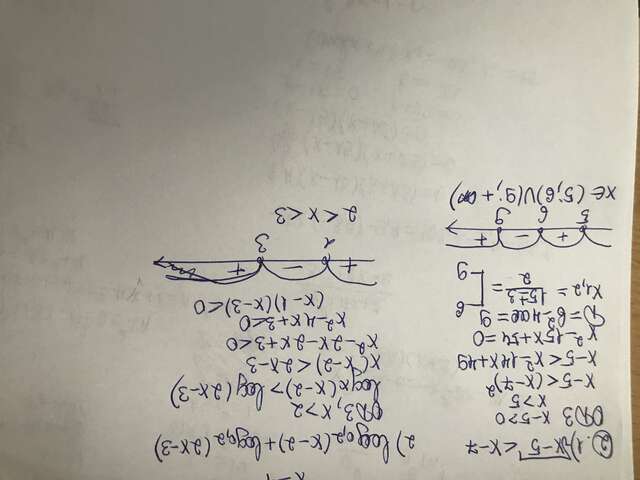 2. 1) √x-5 < x-7
ОДЗ
x-5>0
x>5
x-5 < (x-7)²
x-5 < x²-14x+49
x²-15x+54=0
D=b²-4ac=9
x₁,₂ = 15±3 / 2 = [ 6 9
5 6 9
+ - +
x∈(5;6)∪(9;+∞)
2) log₀,₂(x-2)+log₀,₂(2x-3)
ОДЗ, x>2
logₓ(x-2)>log(2x-3)
x(x-2)<2x-3
x²-2x-2x+3<0
x²-4x+3<0
(x-1)(x-3)<0
+ - +
3
2<x<3